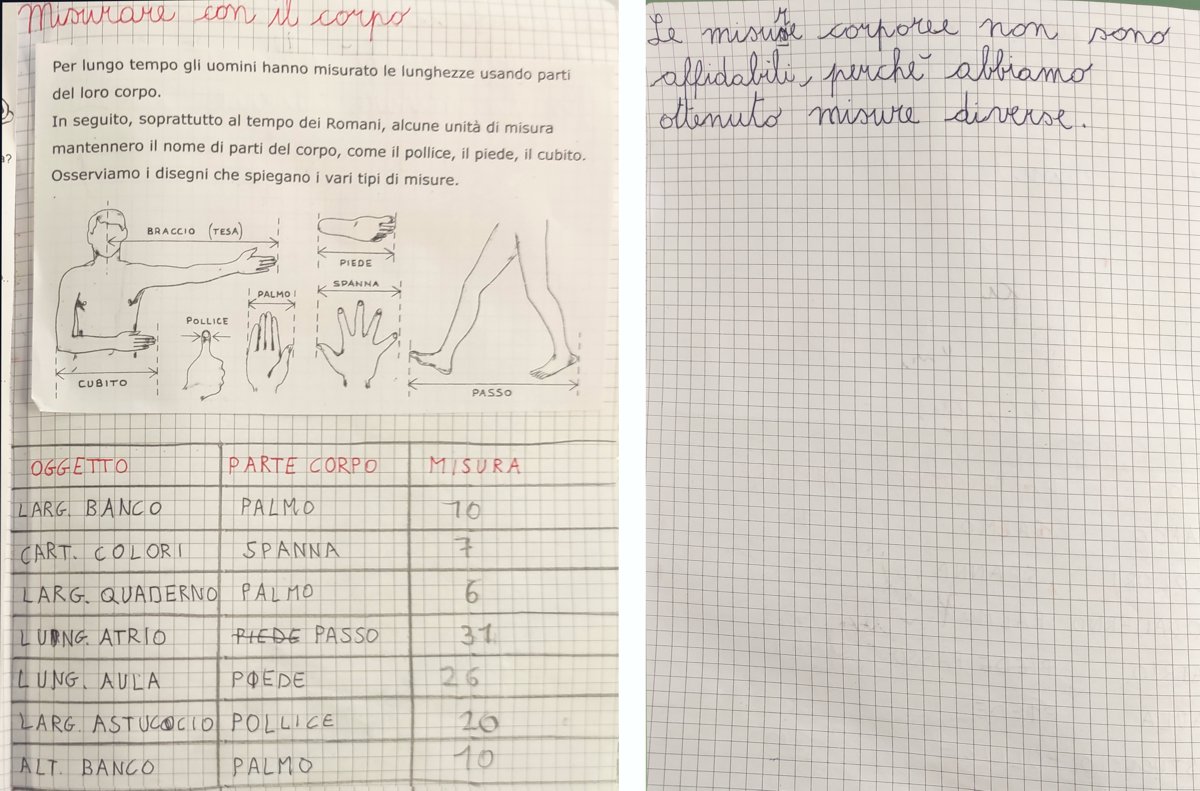 Misurare con il corpo
Per lungo tempo gli uomini hanno misurato le lunghezze usando parti
del loro corpo.
In seguito, soprattutto al tempo dei Romani, alcune unità di misura
mantennero il nome di parti del corpo, come il pollice, il piede, il cubito.
a?
Osserviamo i disegni che spiegano i vari tipi di misure.
BRACCIO (TESA)
PIEDE
SPANNA
PALMO
POLLICE
CUBITO
PASSO
OGGETTO PARTE CORPO MISURA
LARG. BANCO PALMO 10
CART. COLORI SPANNA 7
LARG. QUADERNO PALMO 6
LUNG. ATRIO PIEDE PASSO 31
LUNG. AULA PIEDE 26
LARG. ASTUCCIO POLLICE 20
ALT. BANCO PALMO 10
Le misure corporee non sono
affidabili, perchè abbiamo
ottenuto misure diverse.